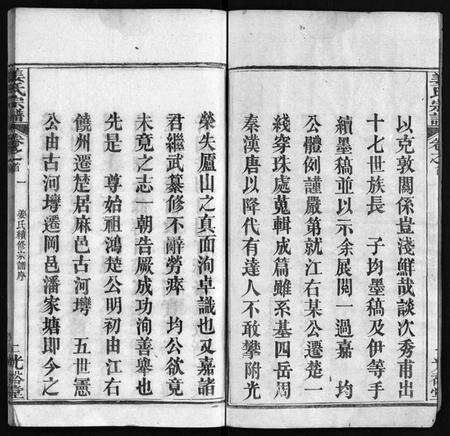 姜氏宗譜
卷之首
光裕堂
以克敦關係豈淺鮮哉談次秀甫出
十七世族長 子均墨稿及伊等手
續墨稿並以示余展閱一過嘉 均
公體例謹嚴第就江右某公遷楚一
綫穿珠處蒐輯成篇雖系基四岳周
秦漢唐以降代有達人不敢攀附光
榮失廬山之真面洵卓識也又嘉諸
君繼武纂修不辭勞瘁 均公欲竟
未竟之志一朝告厥成功洵善舉也
先是 尊始祖鴻楚公明初由江右
饒州遷楚居麻邑古河塆 五世憲
公由古河塆遷岡邑潘家塘即今之
姜氏宗譜
卷之首
一
姜氏續修宗譜序
光裕堂